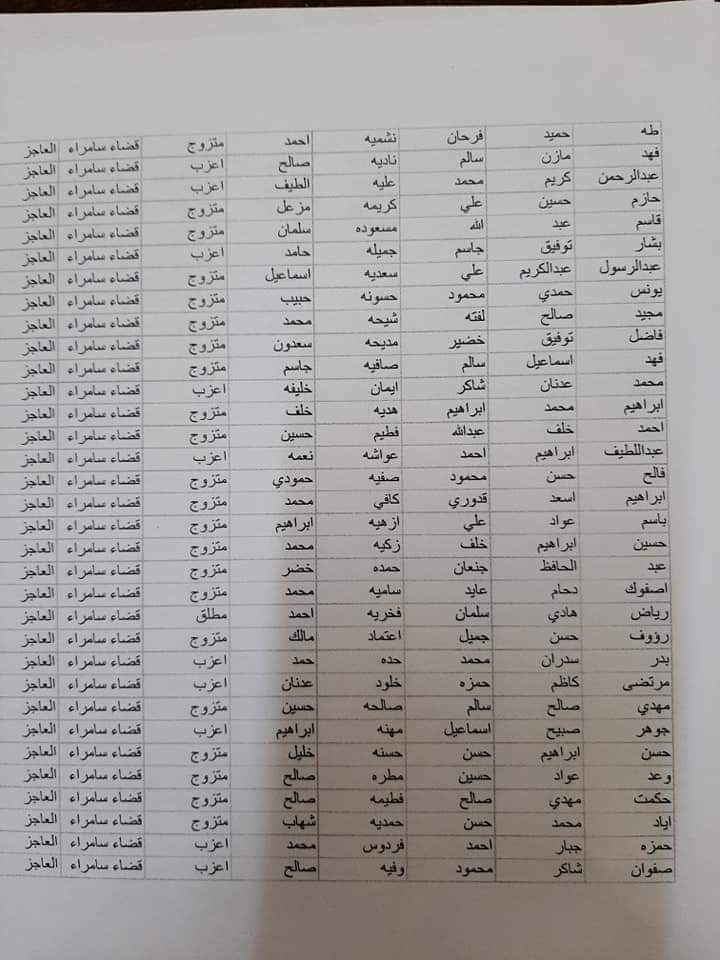 طه حميد فرحان نشميه احمد متزوج قضاء سامراء العاجز
فهد مازن سالم ناديه صالح اعزب قضاء سامراء العاجز
عبدالرحمن كريم محمد عليه الطيف اعزب قضاء سامراء العاجز
حازم حسين علي كريمه مزعل متزوج قضاء سامراء العاجز
قاسم عبد الله مسعوده سلمان متزوج قضاء سامراء العاجز
بشار توفيق جاسم جميله حامد اعزب قضاء سامراء العاجز
عبدالرسول عبدالكريم علي سعديه اسماعيل متزوج قضاء سامراء العاجز
يونس حمدي محمود حسونه حبيب متزوج قضاء سامراء العاجز
مجيد صالح لفته شيحه محمد متزوج قضاء سامراء العاجز
فاضل توفيق خضير مديحه سعدون متزوج قضاء سامراء العاجز
فهد اسماعيل سالم صافيه جاسم متزوج قضاء سامراء العاجز
محمد عدنان شاكر ايمان خليفه اعزب قضاء سامراء العاجز
ابراهيم محمد ابراهيم هديه خلف متزوج قضاء سامراء العاجز
احمد خلف عبدالله فطيم حسين متزوج قضاء سامراء العاجز
عبداللطيف ابراهيم احمد عواشه نعمه اعزب قضاء سامراء العاجز
فالح حسن محمود صفيه حمودي متزوج قضاء سامراء العاجز
ابراهيم اسعد قدوري كافي محمد متزوج قضاء سامراء العاجز
باسم عواد علي ازهيه ابراهيم متزوج قضاء سامراء العاجز
حسين ابراهيم خلف زكيه محمد متزوج قضاء سامراء العاجز
عبد الحافظ جنعان حمده خضر متزوج قضاء سامراء العاجز
اصفوك دحام عايد ساميه محمد متزوج قضاء سامراء العاجز
رياض هادي سلمان فخريه احمد مطلق قضاء سامراء العاجز
رؤوف حسن جميل اعتماد مالك متزوج قضاء سامراء العاجز
بدر سدران محمد حده حمد اعزب قضاء سامراء العاجز
مرتضى كاظم حمزه خلود عدنان اعزب قضاء سامراء العاجز
مهدي صالح سالم صالحه حسين متزوج قضاء سامراء العاجز
جوهر صبيح اسماعيل مهنه ابراهيم اعزب قضاء سامراء العاجز
حسن ابراهيم حسن حسنه خليل متزوج قضاء سامراء العاجز
وعد عواد حسين مطره صالح متزوج قضاء سامراء العاجز
حكمت مهدي صالح فطيمه صالح متزوج قضاء سامراء العاجز
اياد محمد حسن حمديه شهاب متزوج قضاء سامراء العاجز
حمزه جبار احمد فردوس محمد اعزب قضاء سامراء العاجز
صفوان شاكر محمود وفيه صالح اعزب قضاء سامراء العاجز